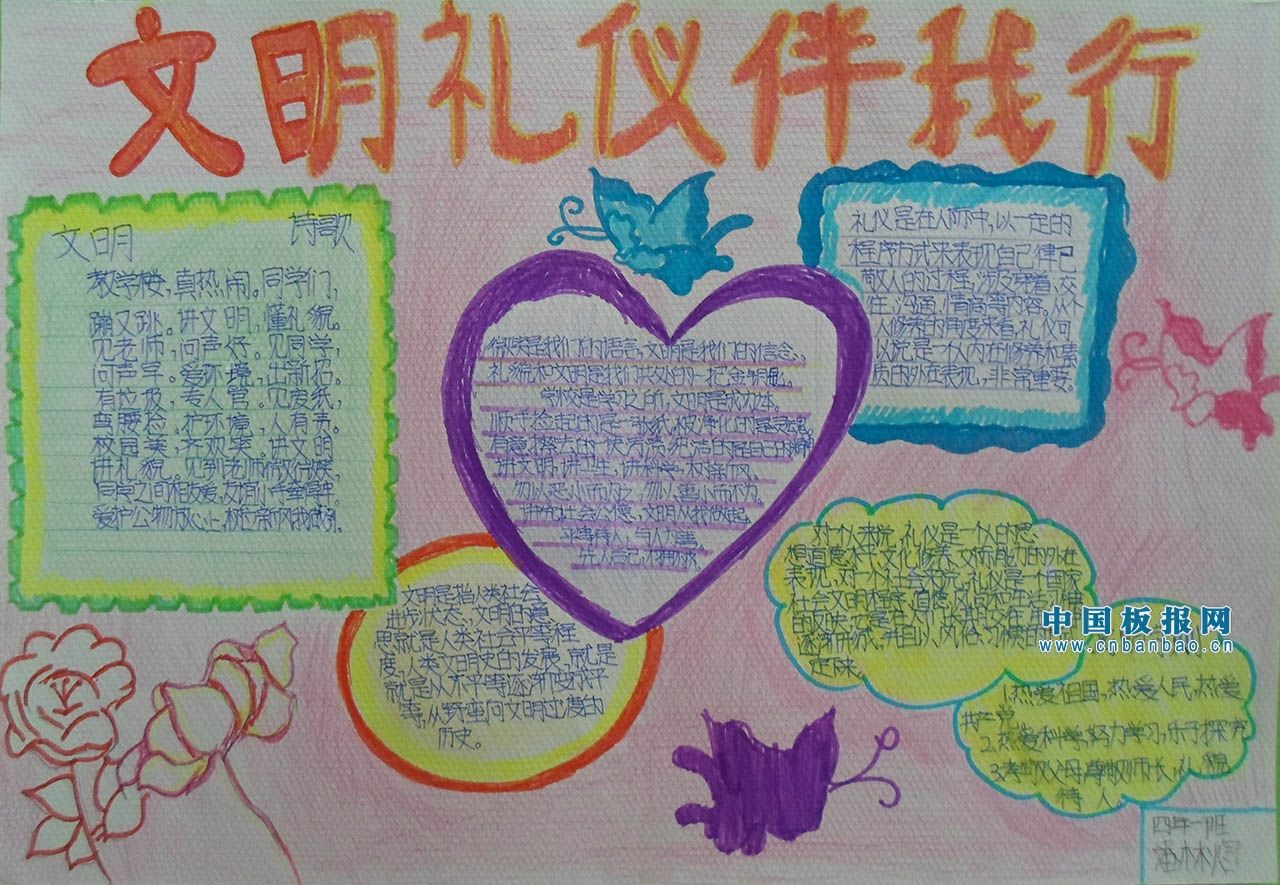 文明礼仪伴我行
文明 诗歌
教学楼,真热闹。同学们,
蹦又跳。讲文明,懂礼貌。
见老师,问声好。见同学,
问声早。爱环境,出新招。
有垃圾,专人管。见废纸,
弯腰捡。护环境,人有责。
校园美,齐欢笑。讲文明
讲礼貌。见到老师微微笑
同学之间相友爱,
爱护公物放心上,树立新风我做到。
微笑是我们的语言,文明是我们的信念。
礼貌和文明是我们共处的一把金钥匙。
学校是学习之所,文明是成才之本。
顺手捡起的是一张纸,被净化的是灵魂,
有意擦去的一块污渍,纯洁的是自己的
讲文明,讲卫生,讲科学,树新风。
勿以恶小而为之,勿以善小而不为。
讲究社会公德,文明从我做起。
平等待人,与人为善,
先人后己,
礼仪是在人际中,以一定的
程序方式来表现自己律己
敬人的过程,涉及穿着、交
往、沟通、情商等内容。从个
人修养的角度来看,礼仪可
以说是一个人内在修养和素
质的外在表现,非常重要。
文明是指人类社会
进步状态,文明的意
思就是人类社会平等程
度,人类文明史的发展,就是
就是从不平等逐渐变成平
等,从野蛮向文明过渡的
历史。
对个人来说,礼仪是一个人的思
想道德水平、文化修养、交际能力的外在
表现,对一个社会来说,礼仪是一个国家
社会文明程度、道德风尚和生活习惯
的反映。
逐渐形成,并且以风俗、习惯
定下来。
中国板报网
www.cnbanbao.cn
1.热爱祖国,热爱人民,热爱
共产党
2.热爱科学,努力学习,乐于探究
3.孝敬父母,尊敬师长,礼貌
待人
四年一班